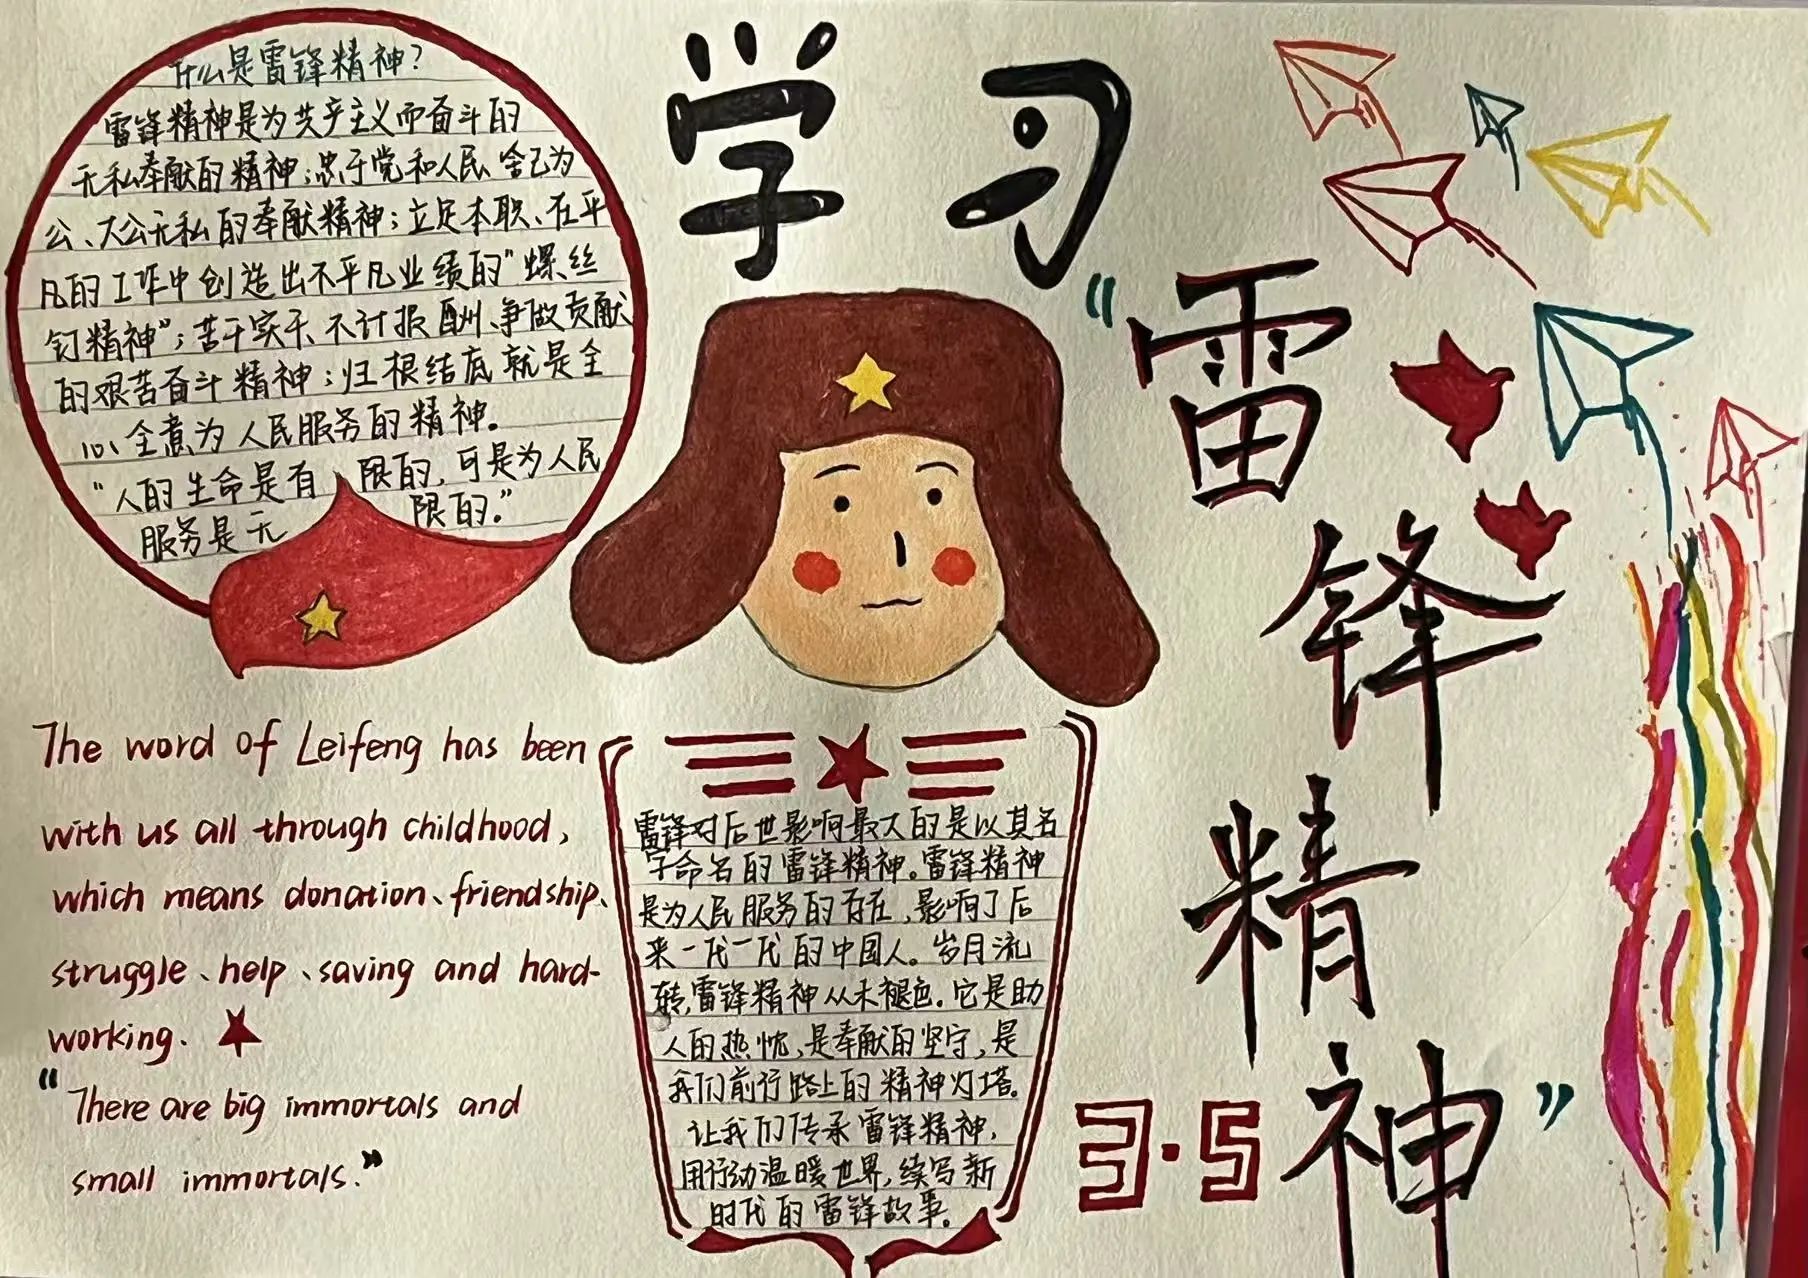 学习
“雷锋精神”
3·5
什么是雷锋精神?
雷锋精神是为共产主义而奋斗的
无私奉献的精神;忠于党和人民、舍己为
公、大公无私的奉献精神;立足本职、在平
凡的工作中创造出不平凡业绩的“螺丝
钉精神”;苦干实干、不计报酬、争做贡献
的艰苦奋斗精神;归根结底就是全
心全意为人民服务的精神。
“人的生命是有限的,可是为人民
服务是无限的。”
The word of Leifeng has been
with us all through childhood,
which means donation、friendship、
struggle、help、saving and hard-
working.
“There are big immortals and
small immortals.”
雷锋对后世影响最大的是以其名
字命名的雷锋精神。雷锋精神
是为人民服务的存在,影响了后
来一代一代的中国人。岁月流
转,雷锋精神从未褪色。它是助
人的热忱,是奉献的坚守,是
我们前行路上的精神灯塔。
让我们传承雷锋精神,
用行动温暖世界,续写新
时代的雷锋故事。